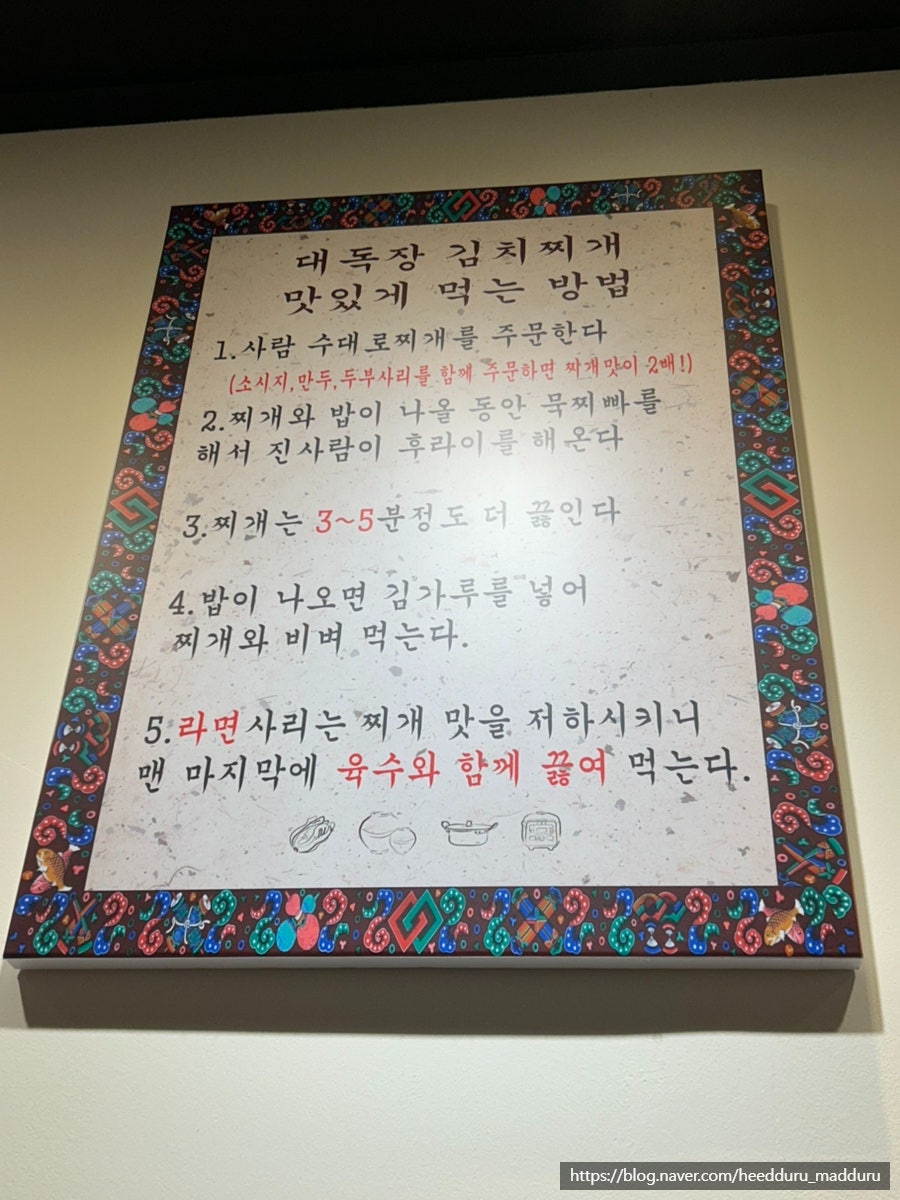 대독장 김치찌개
맛있게 먹는 방법
1.사람 수대로찌개를 주문한다
(소시지,만두,두부사리를 함께 주문하면 찌개맛이 2배!)
2.찌개와 밥이 나올 동안 묵찌빠를
해서 진사람이 후라이를 해온다
3.찌개는 3~5분정도 더 끓인다
4.밥이 나오면 김가루를 넣어
찌개와 비벼 먹는다.
5.라면사리는 찌개 맛을 저하시키니
맨 마지막에 육수와 함께 끓여 먹는다.
https://blog.naver.com/heedduru_madduru